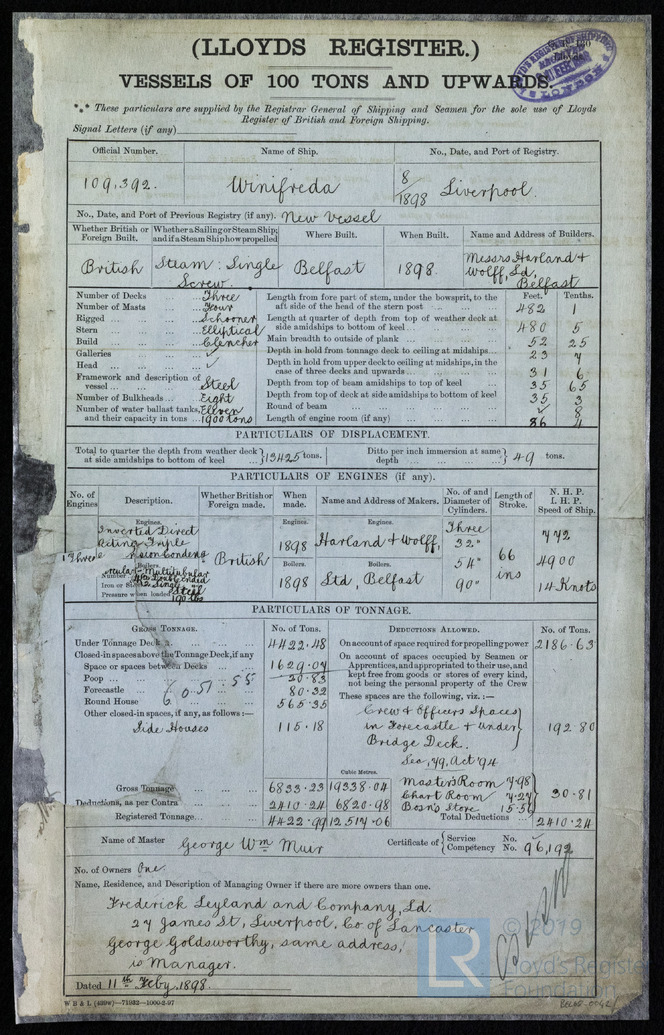 (LLOYDS REGISTER.)
VESSELS OF 100 TONS AND UPWARDS.
*⁎* These particulars are supplied by the Registrar General of Shipping and Seamen for the sole use of Lloyds
Register of British and Foreign Shipping.
Signal Letters (if any)
Official Number. Name of Ship. No., Date, and Port of Registry.
109,392. Winifreda 8/1898 Liverpool.
No., Date, and Port of Previous Registry (if any). New Vessel
Whether British or Foreign Built. Whether a Sailing or Steam Ship; and if a Steam Ship how propelled Where Built. When Built. Name and Address of Builders.
British Steam: Single Screw. Belfast 1898. Messrs Harland & Wolff, Ld, Belfast
Number of Decks Three
Number of Masts Four
Rigged Schooner
Stern Elliptical
Build Clencher
Galleries ✓
Head ✓
Framework and description of vessel Steel
Number of Bulkheads Eight
Number of water ballast tanks, and their capacity in tons Eleven 1900 tons
Feet. Tenths.
Length from fore part of stem, under the bowsprit, to the aft side of the head of the stern post 482 1
Length at quarter of depth from top of weather deck at side amidships to bottom of keel 480 5
Main breadth to outside of plank 52 25
Depth in hold from tonnage deck to ceiling at midships 23 7
Depth in hold from upper deck to ceiling at midships, in the case of three decks and upwards 31 6
Depth from top of beam amidships to top of keel 35 65
Depth from top of deck at side amidships to bottom of keel 35 3
Round of beam ✓ 8
Length of engine room (if any) 86 4
PARTICULARS OF DISPLACEMENT.
Total to quarter the depth from weather deck at side amidships to bottom of keel 13425 tons. Ditto per inch immersion at same depth 49 tons.
PARTICULARS OF ENGINES (if any).
No. of Engines Description. Whether British or Foreign made. When made. Name and Address of Makers. No. of and Diameter of Cylinders. Length of Stroke. N. H. P. I. H. P. Speed of Ship.
Engines. Engines. Engines.
Inverted Direct
Acting Triple
Three British 1898 Harland & Wolff, Three 32" 772
Boilers. Boilers. Boilers.
54" 66 ins 4900
Number
Iron or Steel Steel
Pressure when loaded 190 lbs
1898 Ltd, Belfast 90" 14 Knots
PARTICULARS OF TONNAGE.
GROSS TONNAGE. No. of Tons. DEDUCTIONS ALLOWED. No. of Tons.
Under Tonnage Deck 4422.48
Closed-in spaces above the Tonnage Deck, if any
Space or spaces between Decks 1629.07
Poop 20.83
Forecastle 80.32
Round House 565.35
Other closed-in spaces, if any, as follows:—
Side Houses 115.18
On account of space required for propelling power 2186.63
On account of spaces occupied by Seamen or
Apprentices, and appropriated to their use, and
kept free from goods or stores of every kind,
not being the personal property of the Crew
These spaces are the following, viz.:—
Crew & Officers Spaces
in Forecastle & under 192 80
Bridge Deck.
Sec, 79, Act '94
Cubic Metres.
Gross Tonnage 6833.23 19338.04
Deductions, as per Contra 2410.24 6820.98
Registered Tonnage. 4422.99 12517.06
Master's Room 7.98
Chart Room 7.27 30.81
Bosn's Store 15.56
Total Deductions 2410.24
Name of Master George Wm Muir Certificate of Service No. ✓
Competency No. 96,192
No. of Owners One.
Name, Residence, and Description of Managing Owner if there are more owners than one.
Frederick Leyland and Company, Ld.
27 James St, Liverpool, Co of Lancaster
George Goldsworthy, same address,
is Manager.
Dated 11th Feby, 1898.
W B & L (429w)—71932—1000-2-97
LR © 2019
Lloyd's Register
Foundation